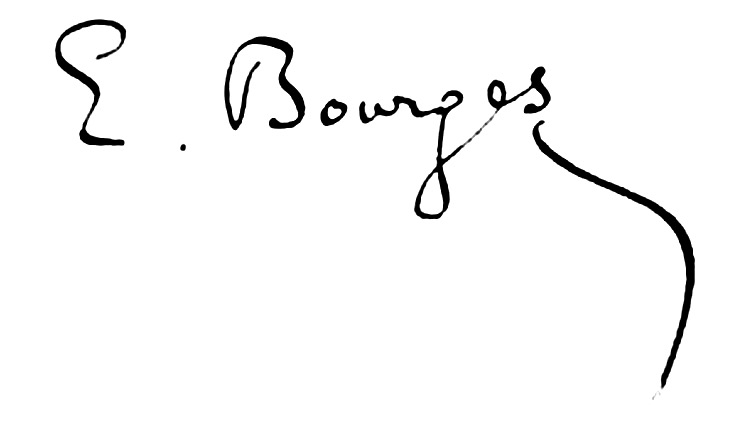 E. Bourges